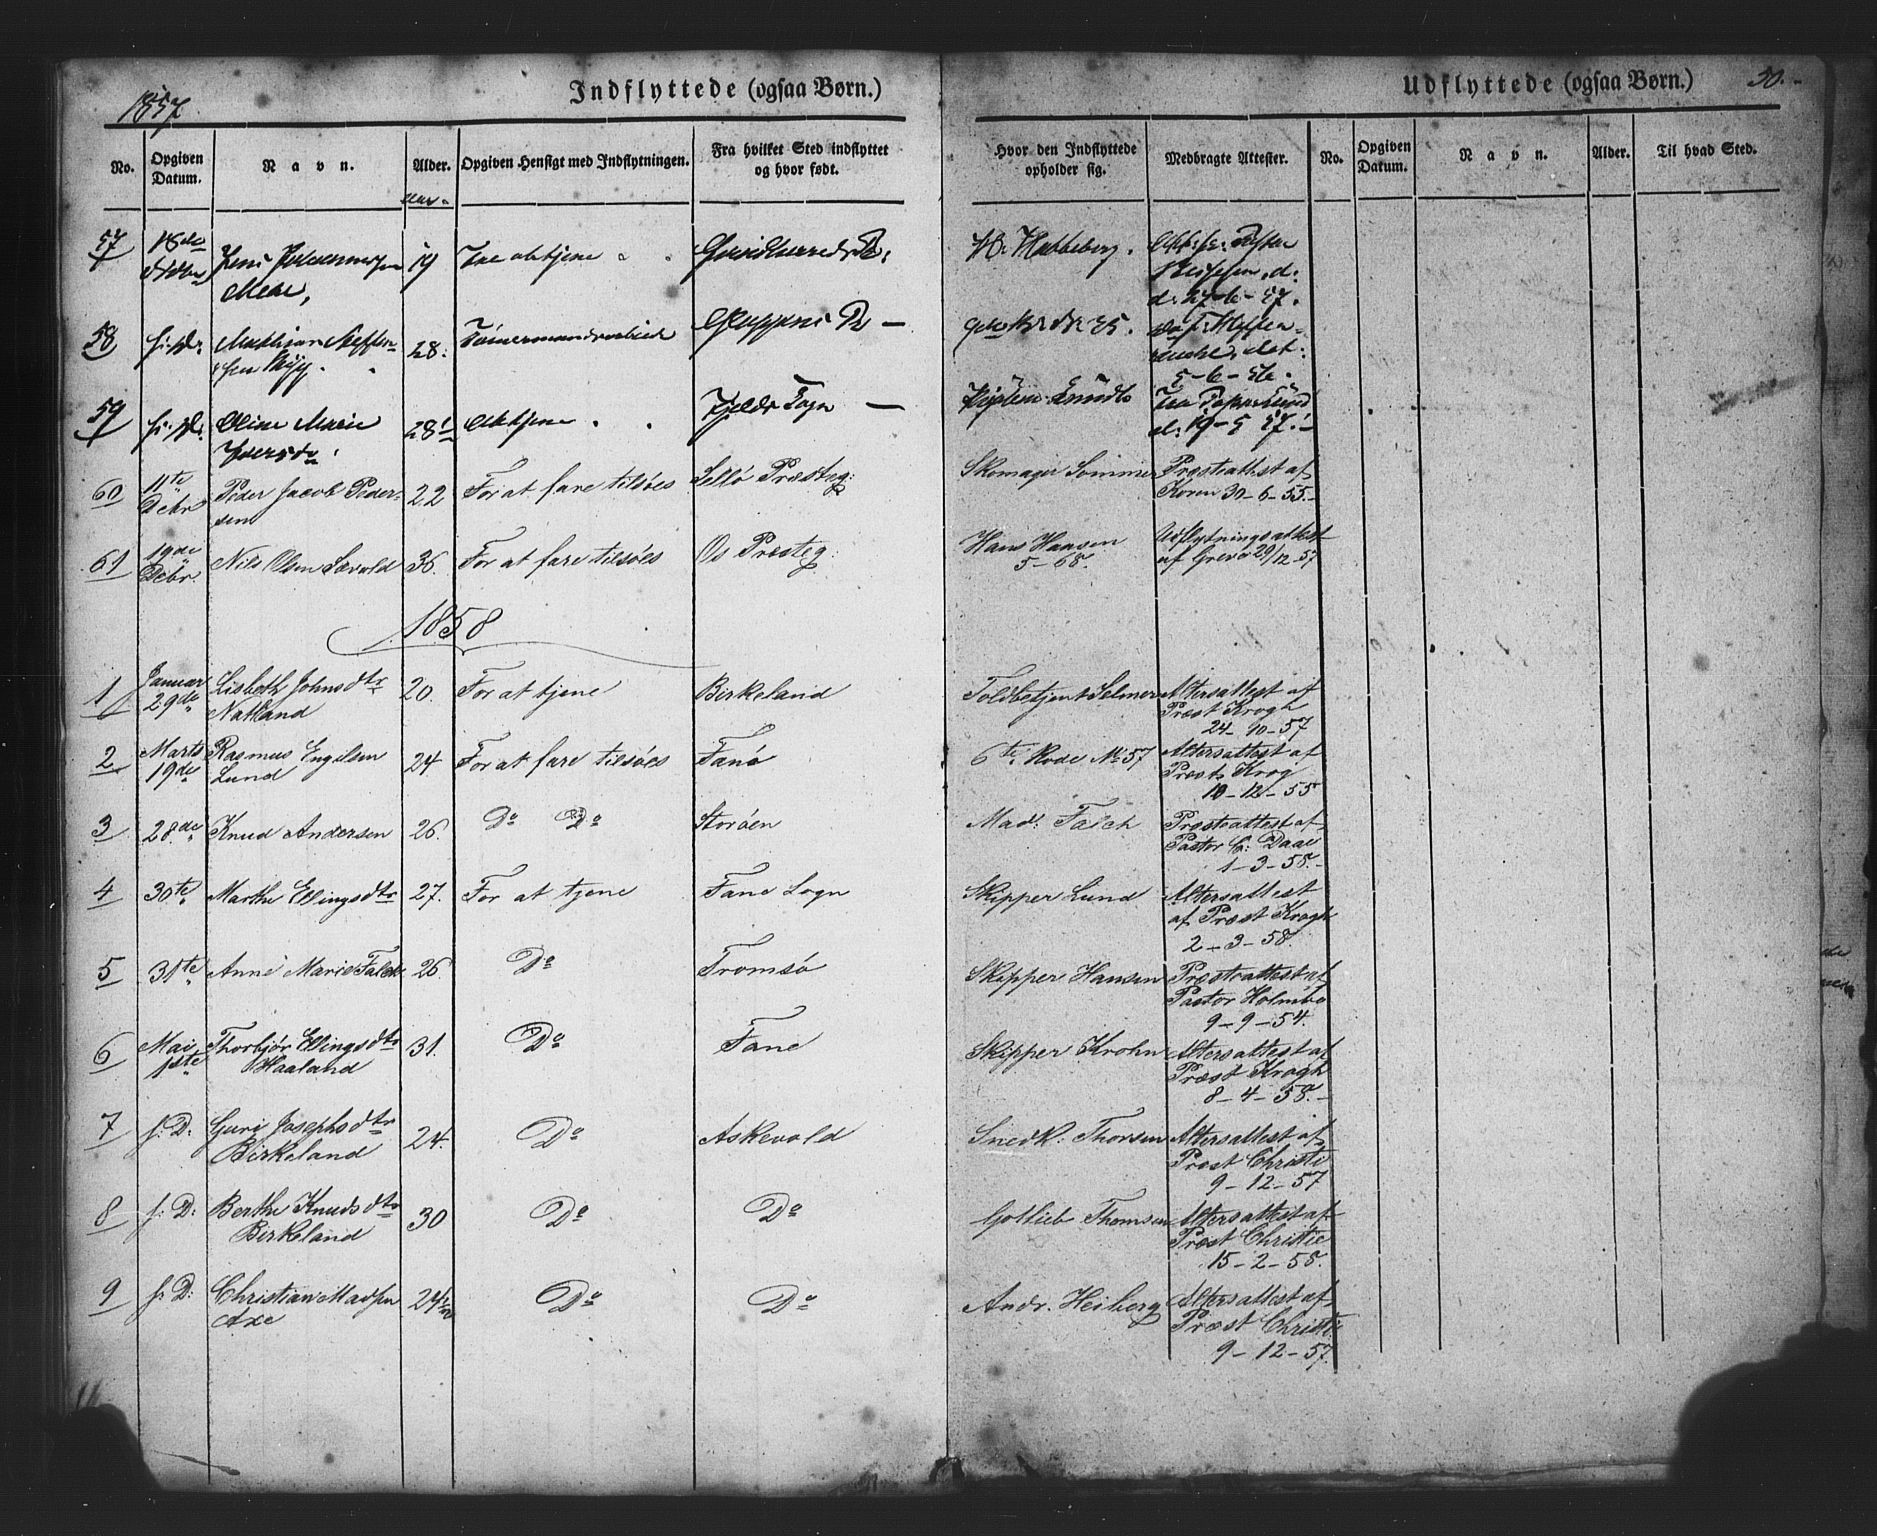 1857.
Indflyttede (ogsaa Børn.)
Udflyttede (ogsaa Børn.)
50.
No. Opgiven Datum. Navn. Alder. Opgiven Hensigt med Indflytningen. Fra hvilket Sted indflyttet og hvor født. Hvor den Indflyttede opholder sig. Medbragte Attester. No. Opgiven Datum. Navn. Alder. Til hvad Sted.
57 19
27-6-57.
58 28.
5-6-56.
59 Oline Marie 28
19-5 57.
60 11te Debr Peder Jacob Pedersen 22 For at fare tilsöes Sellö Præsteg: Skomager Sommer Præsteattest af Koren 30-6-55.
61 19de Debr Nils Olsen Sævold 36. For at fare tilsöes Os Præsteg: Hans Hansen 5-68. Udflytningsattest af Greve 29/12-57
1858
1 Januar 29de Lisbeth Johnsdtr Natland 20. For at tjene Birkeland Toldbetjent Selmer Altersattest af Præst Krogh 24-10-57
2 Marts 19de Rasmus Engelsen Lund 24 For at fare tilsöes Fanö 6te Rode No 57 Altersattest af Præst Krog 10-12-55
3 28de Knud Andersen 26. Do Do Storöen Mad. Falch Præsteattest af Pastor C: Daae 1-3-58.
4 30te Marthe Ellingsdtr 27. For at tjene Fane Sogn Skipper Lund Altersattest af Præst Krogh 2-3-58.
5 31te Anne Marie Falck 26 Do Tromsö Skipper Hansen Præsteattest af Pastor Holmboe 9-9-54.
6 Mai 1ste Thorbjör Ellingsdtr Haaland 31. Do Fane Skipper Krohn Altersattest af Præst Krogh 8-4-58.
7 s. D: Guri Josephsdtr Birkeland 24. Do Askevold Snedk. Thorsen Altersattest af Præst Christi 9-12-57
8 s. D: Berthe Knudsdtr Birkeland 30 Do Do Gotlieb Thomsen Altersattest af Præst Christie 15-2-58.
9 s. D: Christian Madsen Axe 24 Do Do Andr. Heiberg Altersattest af Præst Christie 9-12-57.